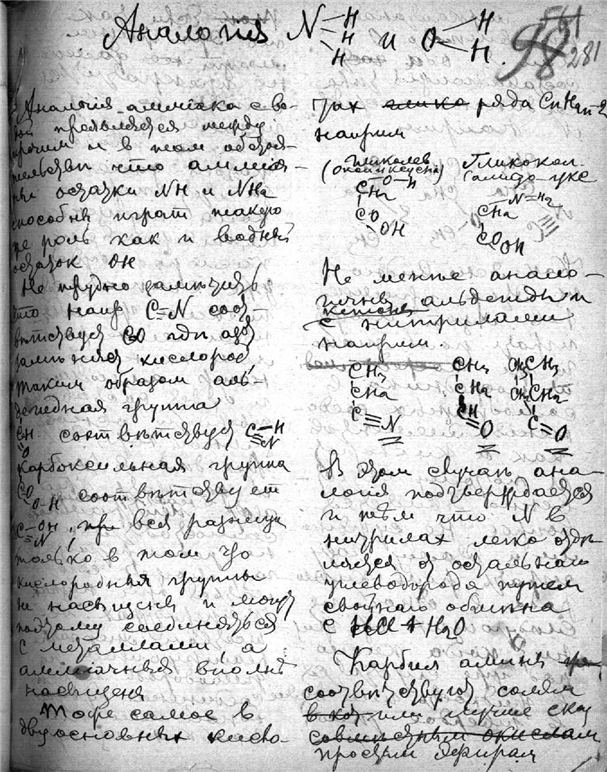 Аналогия N H H H и O H H.
561
98
281
Аналогия аммиака с во-
дой проявляется между
прочим и в том обстоя-
тельстви что аммиач-
ные остатки NH и NH2
способны играт такую
же роль как и водный
остаток OH
Не трудно заметить
что напр C≡N соот
ветствует CO где азот
заменяет кислород
таким образом аль-
дегидная группа
CH O соотвѣтствует C-H N
Карбоксильная группа
CO O-H соотвѣтствует
C-OH N, при вся разница
только в том что
кислородныя группы
не насыщены и могут
поэтому соединяться
с металлами, а
аммиачныя вполнѣ
насыщены
Тоже самое в
двуосновных кисло-
тах ряда CnH2n-2
наприм
Гликолев Гликокол
(оксиуксусна) (амидо-укс
CH2 O-H CH2 N=H2
CO CO
OH OH
Не менѣе анало-
гичны альдегиды и
кетоны
с нитрилами
наприм
CH3 CH3 CH3
CH2 CH2 CH2
C≡N CH=O C=O
В этом случаѣ ана-
логия подтверждается
и тѣм что N в
нитрилах легко отде-
ляется от остальнаго
углеводорода путем
двойнаго обмѣна
с HCl + H2O
Карбил амины
соотвѣтствуют солям
или лучше ска
простым эфирам